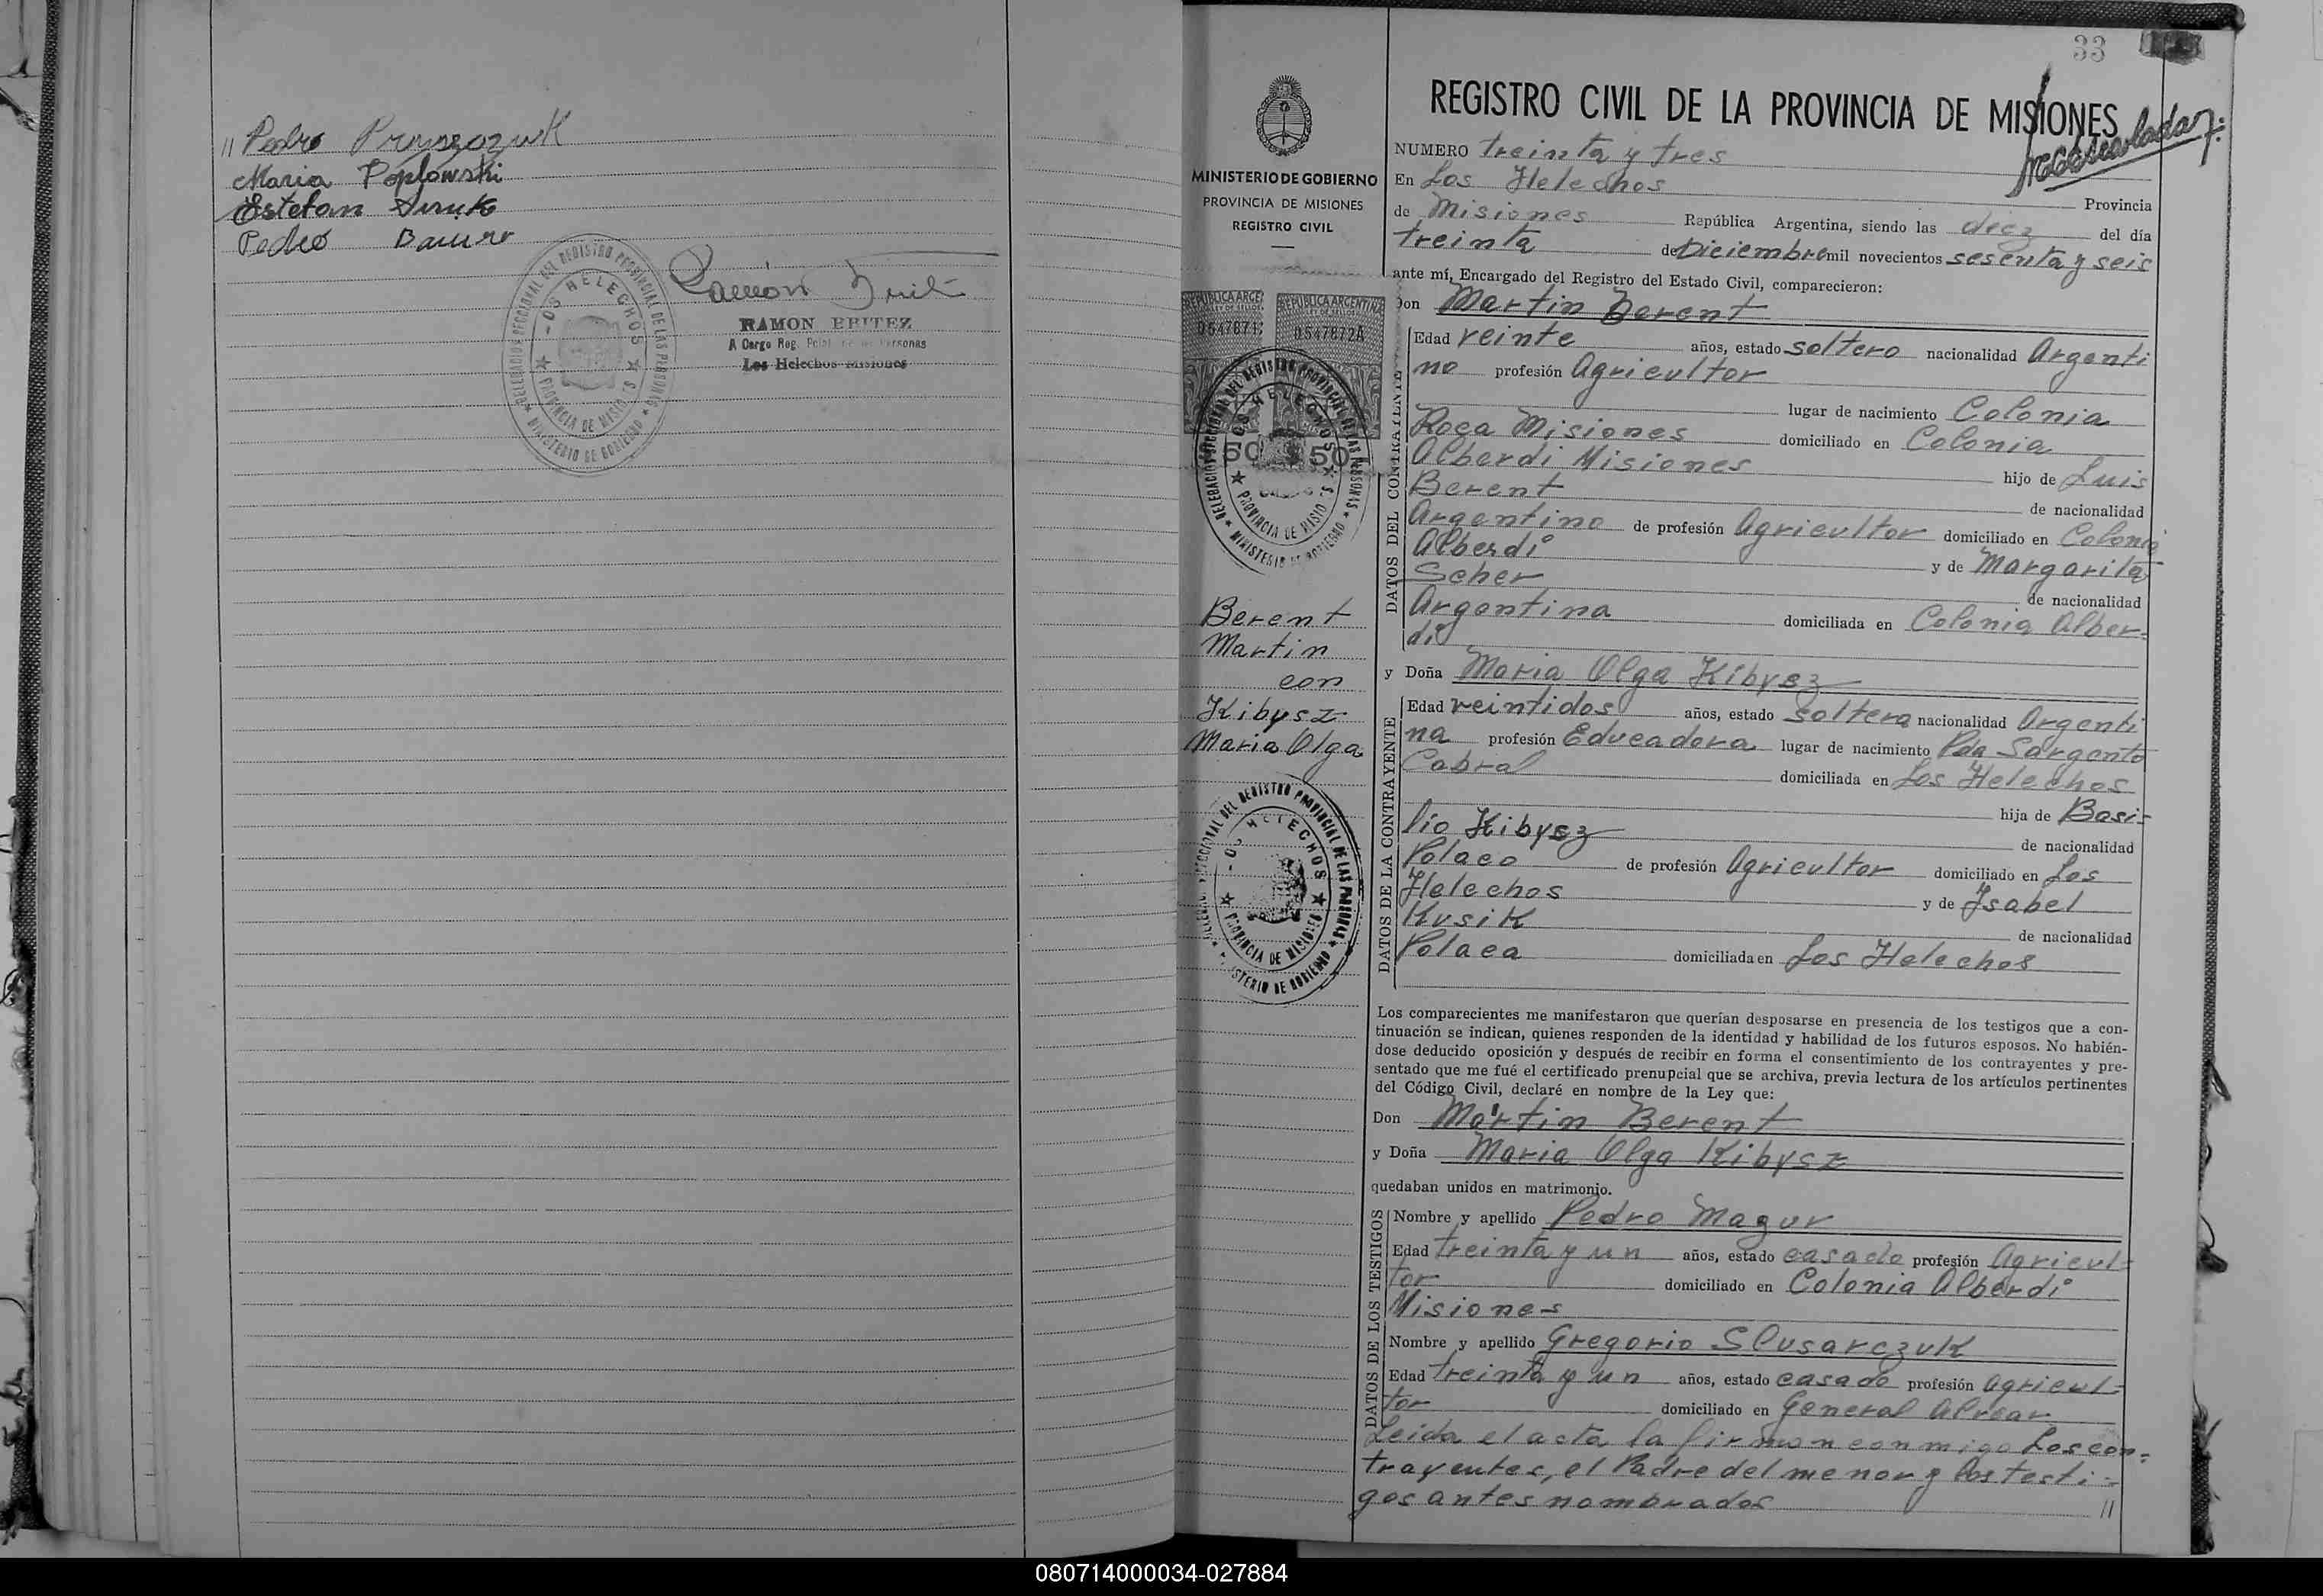 // Pedro Pryszczuk
Maria Poplowski
Estefan
Pedro
RAMON BRITEZ
A Cargo Reg. Pcial. de las Personas
Los Helechos Misiones
DELEGACION SECCIONAL DEL REGISTRO PROVINCIAL DE LAS PERSONAS
LOS HELECHOS
PROVINCIA DE MISIONES
MINISTERIO DE GOBIERNO
33
MINISTERIO DE GOBIERNO
PROVINCIA DE MISIONES
REGISTRO CIVIL
REPUBLICA ARGENTINA
0547872A
50
50
Berent
Martin
con
Kibysz
Maria Olga
REGISTRO CIVIL DE LA PROVINCIA DE MISIONES
NUMERO treinta y tres
En Los Helechos Provincia
de Misiones República Argentina, siendo las diez del día
treinta de Diciembre mil novecientos sesenta y seis
ante mí, Encargado del Registro del Estado Civil, comparecieron:
Don Martin Berent
DATOS DEL CONTRAYENTE
Edad veinte años, estado soltero nacionalidad Argenti
no profesión Agricultor
lugar de nacimiento Colonia
Roca Misiones domiciliado en Colonia
Alberdi Misiones hijo de Luis
Berent de nacionalidad
Argentino de profesión Agricultor domiciliado en Colonia
Alberdi y de Margarita
Scher de nacionalidad
Argentina domiciliada en Colonia Alber-
di
y Doña Maria Olga Kibysz
DATOS DE LA CONTRAYENTE
Edad veintidos años, estado soltera nacionalidad Argenti
na profesión Educadora lugar de nacimiento Pda Sargento
Cabral domiciliada en Los Helechos
hija de Basi-
lio Kibysz de nacionalidad
Polaco de profesión Agricultor domiciliado en Los
Helechos y de Isabel
Kusik de nacionalidad
Polaca domiciliada en Los Helechos
Los comparecientes me manifestaron que querían desposarse en presencia de los testigos que a con-
tinuación se indican, quienes responden de la identidad y habilidad de los futuros esposos. No habién-
dose deducido oposición y después de recibir en forma el consentimiento de los contrayentes y pre-
sentado que me fué el certificado prenupcial que se archiva, previa lectura de los artículos pertinentes
del Código Civil, declaré en nombre de la Ley que:
Don Martin Berent
y Doña Maria Olga Kibysz
quedaban unidos en matrimonio.
DATOS DE LOS TESTIGOS
Nombre y apellido Pedro Mazur
Edad treinta y un años, estado casado profesión Agricul-
tor domiciliado en Colonia Alberdi
Misiones
Nombre y apellido Gregorio Slusarczuk
Edad treinta y un años, estado casado profesión agricul-
tor domiciliado en General Alvear
Leida el acta la firman conmigo Los con-
trayentes, el Padre del menor y los testi-
gos antes nombrados //
080714000034-027884